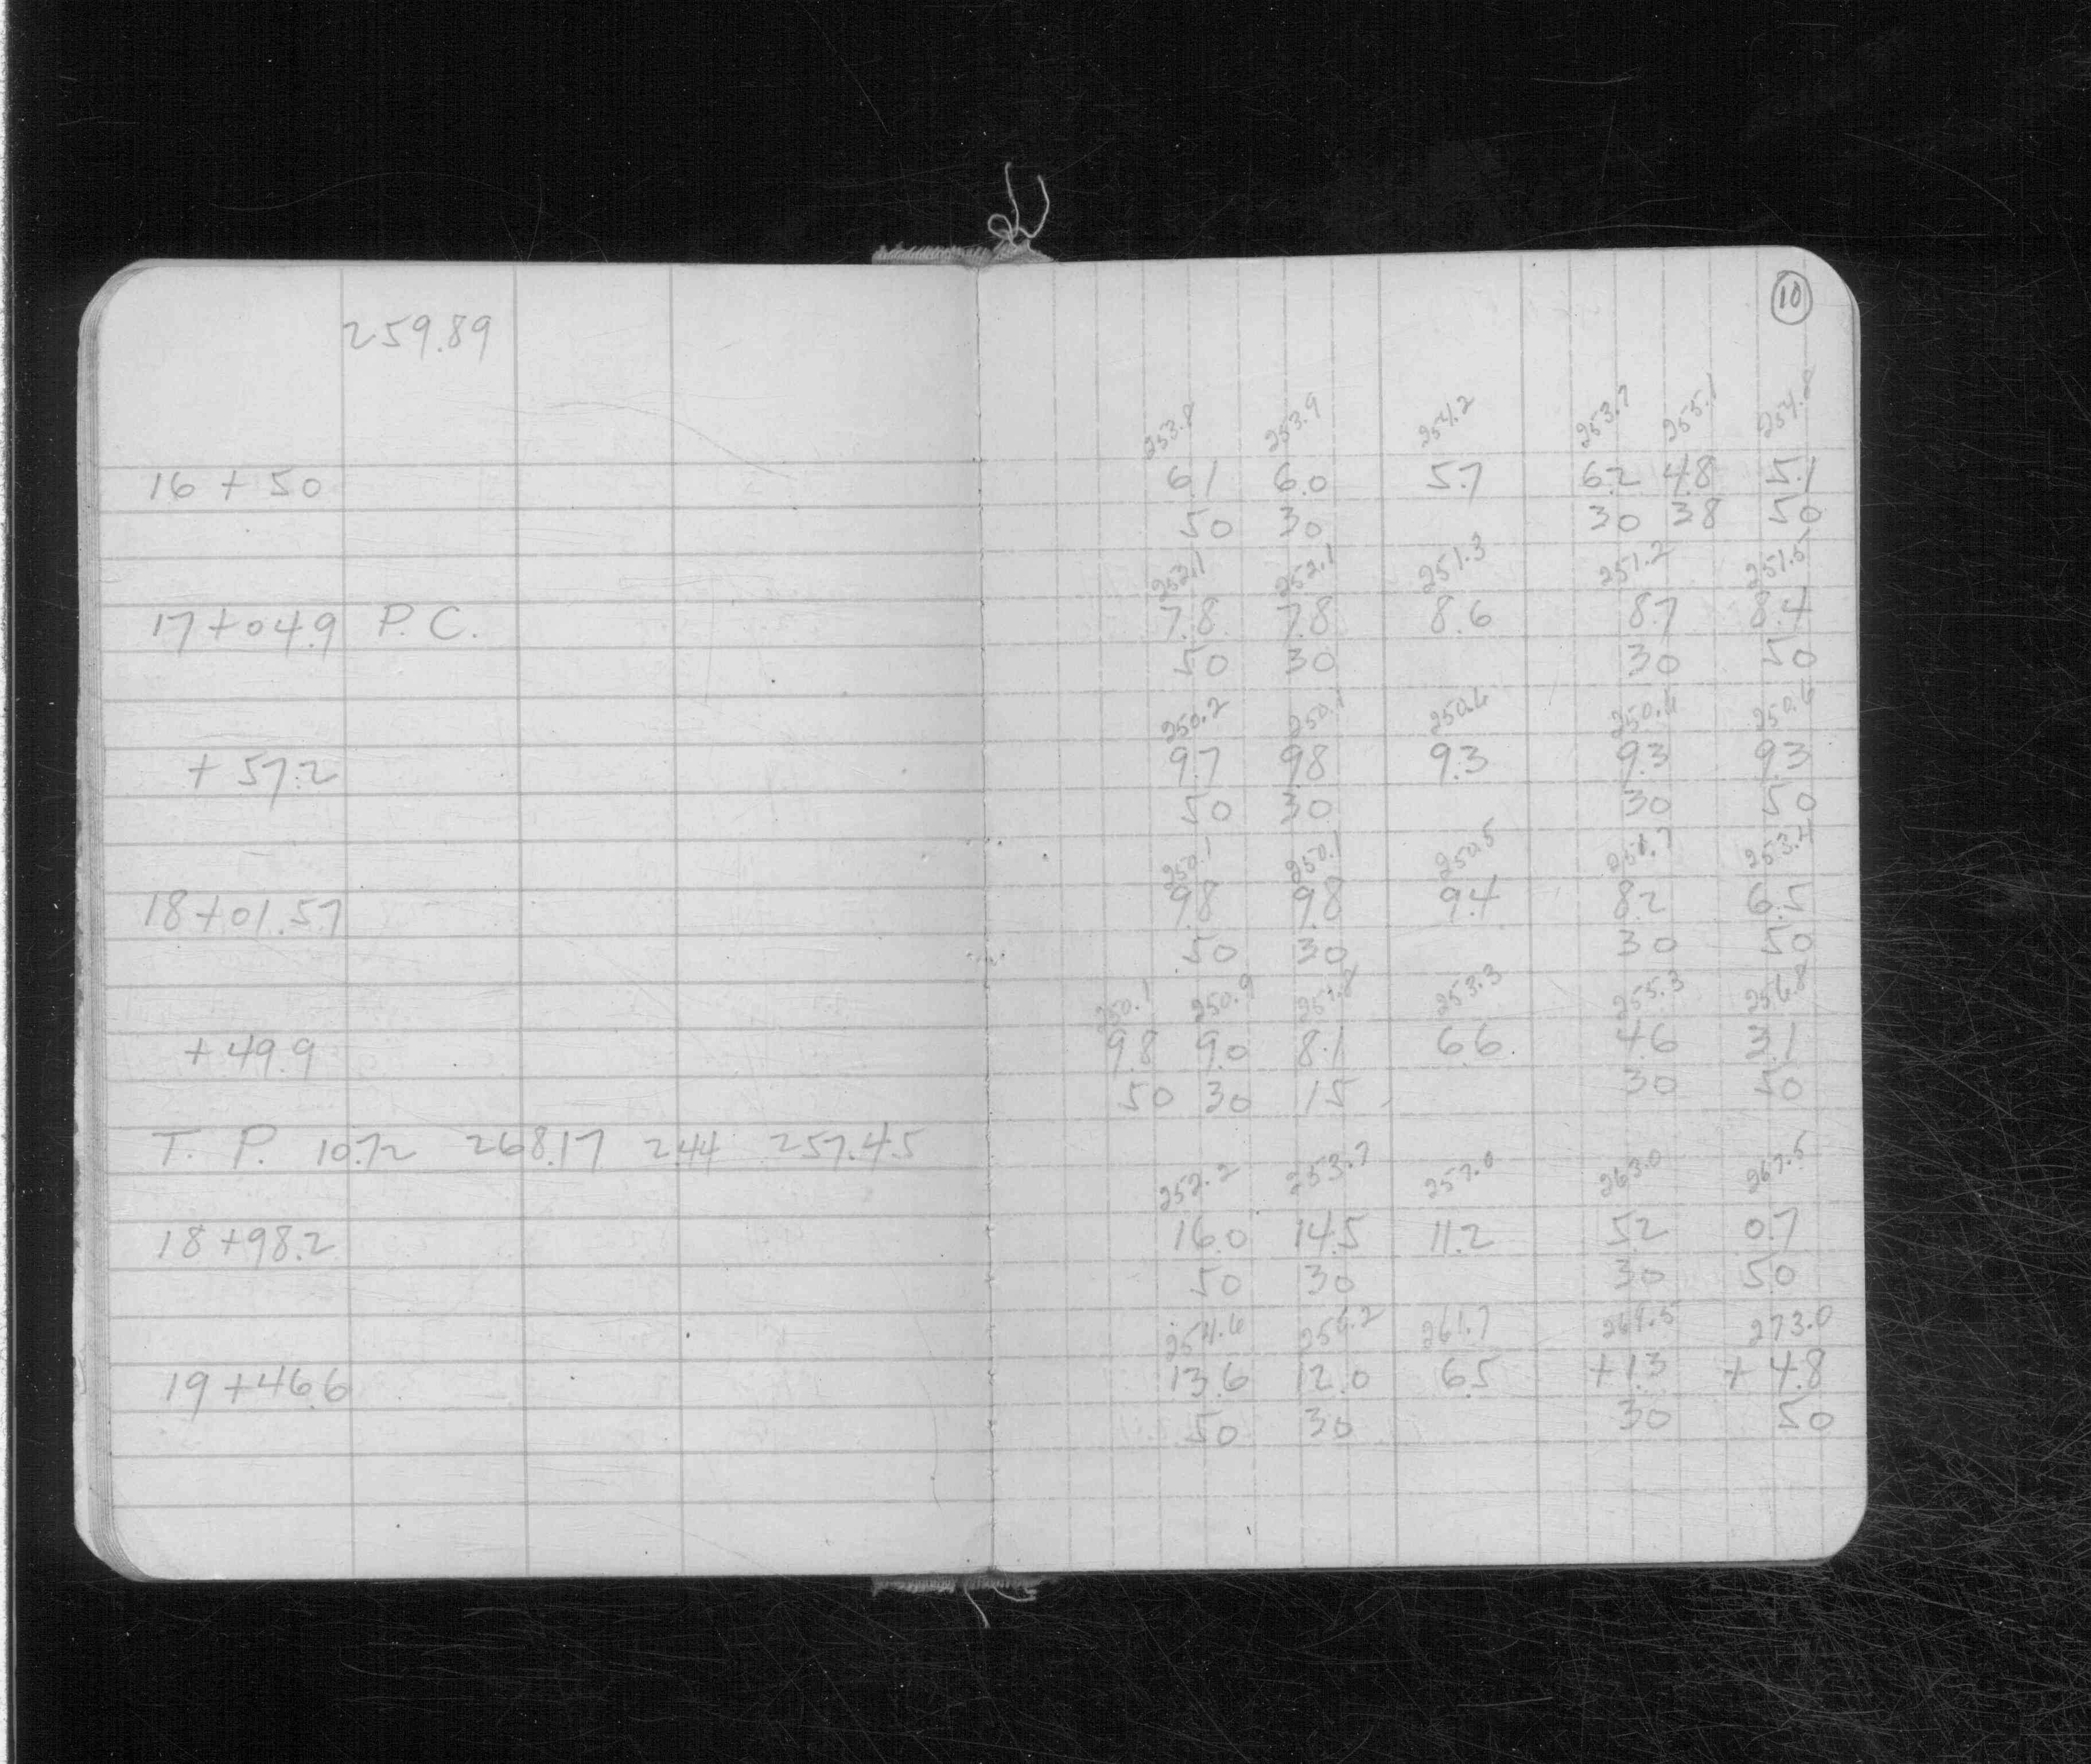 10
259.89
253.8 253.9 254.2 253.7 255.1 254.8
16 + 50 6.1 6.0 5.7 6.2 4.8 5.1
50 30 30 38 50
252.1 252.1 251.3 251.2 251.5
17+04.9 P.C. 7.8 7.8 8.6 8.7 8.4
50 30 30 50
250.2 250.1 250.6 250.6 250.6
+ 57.2 9.7 9.8 9.3 9.3 9.3
50 30 30 50
250.1 250.1 250.5 251.7 253.4
18+01.57 9.8 9.8 9.4 8.2 6.5
50 30 30 50
250.1 250.9 251.8 253.3 255.3 256.8
+ 49.9 9.8 9.0 8.1 6.6 4.6 3.1
50 30 15 30 50
T. P. 10.72 268.17 2.44 257.45
252.2 253.7 257.0 263.0 267.5
18+98.2 16.0 14.5 11.2 5.2 0.7
50 30 30 50
254.6 256.2 261.7 269.5 273.0
19+46.6 13.6 12.0 6.5 +1.3 + 4.8
50 30 30 50